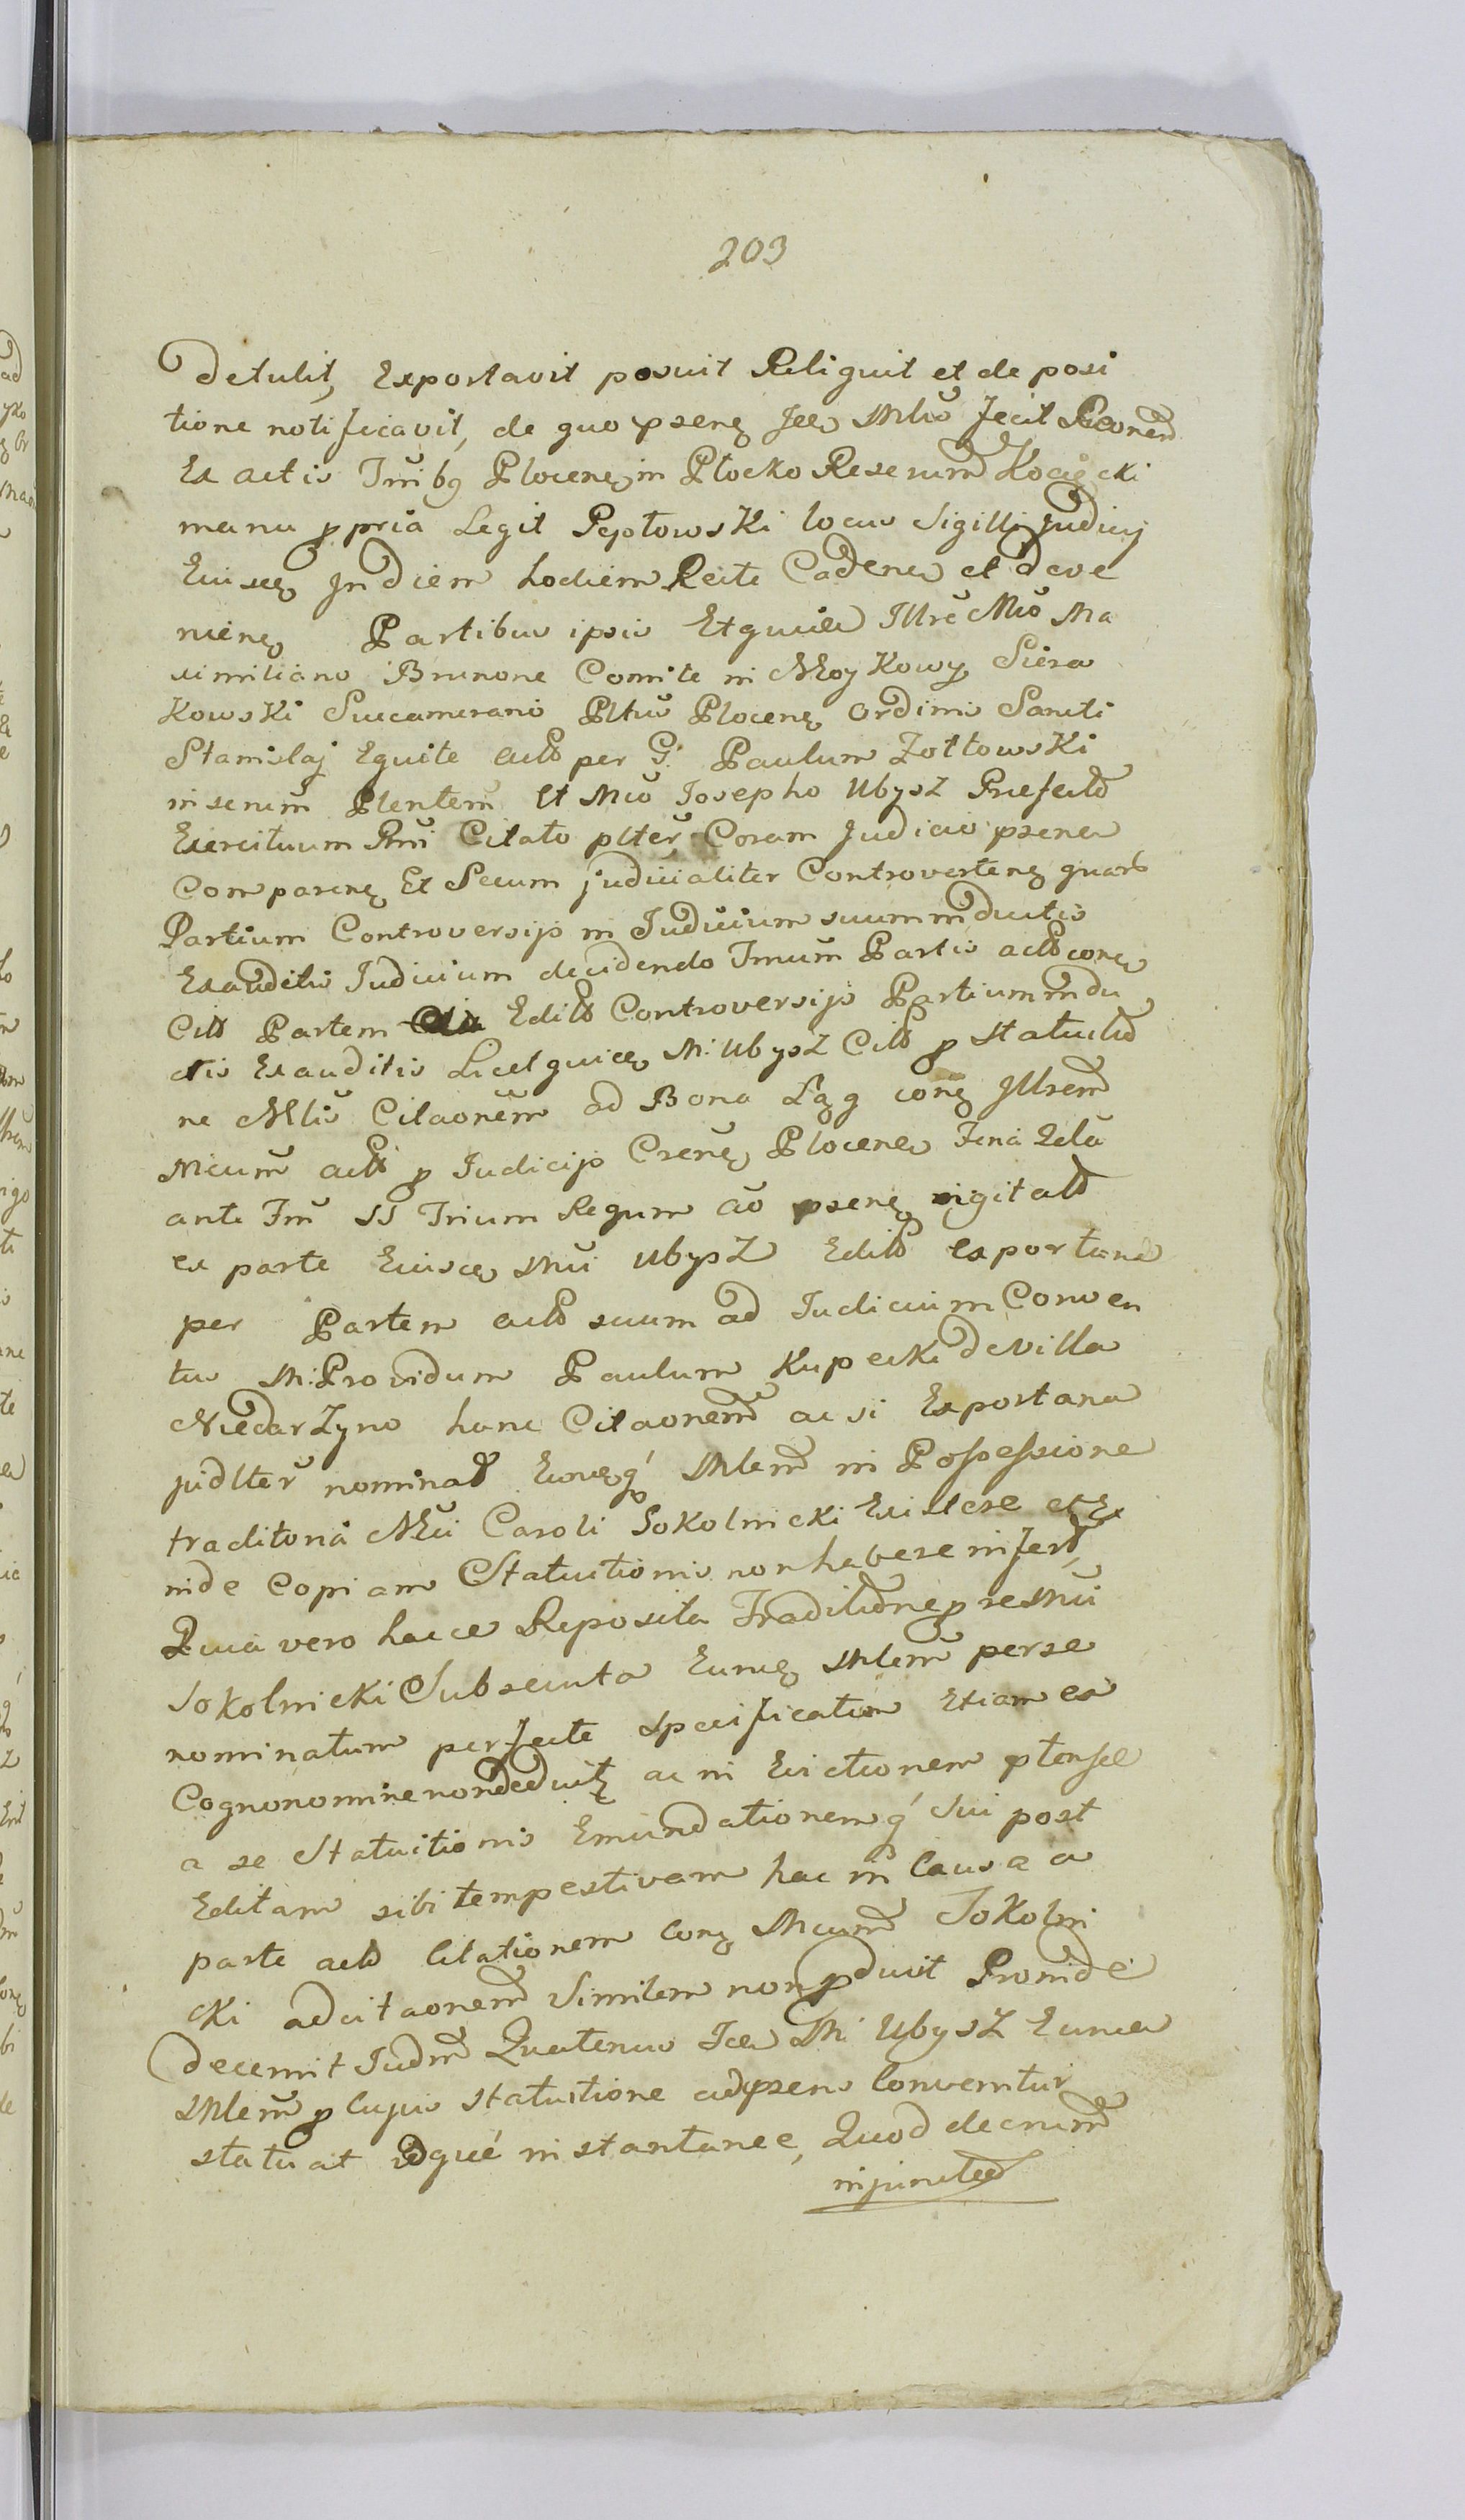 203
Detulit, Exportavit posuit Reliquit et de posi
tione notificavit, de quo psenę Jee Mlis fecit Reonem
Ex actis Trribq Plocenę in Płocko Reserum Kocięcki
manu ppria Legit Peptowski locus Sigilli Judicij
Euiscę In Diem hodiern Recte Cadene et deve
niene Partibus ipsis Et quide Illre Mco Ma
ximiliano Brunone Comite in Moykowy Siera
Kowski Succamerario Pltus Plocenę Ordinis Sancti
Stanislaj Equite actō per G. Paulum Zołtowski
inserum Plentem Et Mco Josepho Ubysz Praefecto
Exercituum Rni Citato plter Coram Judicio psene
Comparenę Et Secum judicialiter Controvertenę quarb
Partium Controversijs in Judicium suum inductis
Exauditis Judicium decidendo Tmum Partis actō cone
Citō Partem Editō Controversijs Partium indu
ctis Exauditis Licet quidę M: Ubysz Citō p statuitio
ne Mlis Citaonem ad Bona Łąg conę Illrem
Mcum actō p Judicijs Crenę Plocene Fena 2da
ante Fm SS Trium Regum aō psenę vigit alō
ex parte Eiuscę Mci Ubysz Editō exportand
per Partem actō suum ad Judicium Conven
tus M: Providum Paulum Kupecki de Villa
Niedarzyno hanc Citaonem ac si Exportana
judlter nominatō Eumcęq Mlem in Possessione
traditoria Mci Caroli Sokolnicki Existere et Ex
inde Copiam Statuitionis non habere infert,
Quia vero haece Reposita Traditione p se Mci
Sokolnicki Subsecuta Eumcę Mlem per se
nominatum perfecte specificatum Etiam ex
Cognomine non deducit ac in Evictionem ptensae
a se Statuitionis Emundationemq sui post
Editam sibi tempestivam hac in Causa a
parte actō Citationem Conę Mcum Sokolni
cki adcitaonem Similem non pduxit Proinde
decernit Judm Quatenus Jee M: Ubysz Eumce
Mlem p cujus Statuitione ad psens Convenitur
statuat idque instantanee, Quod decrum
injunctō